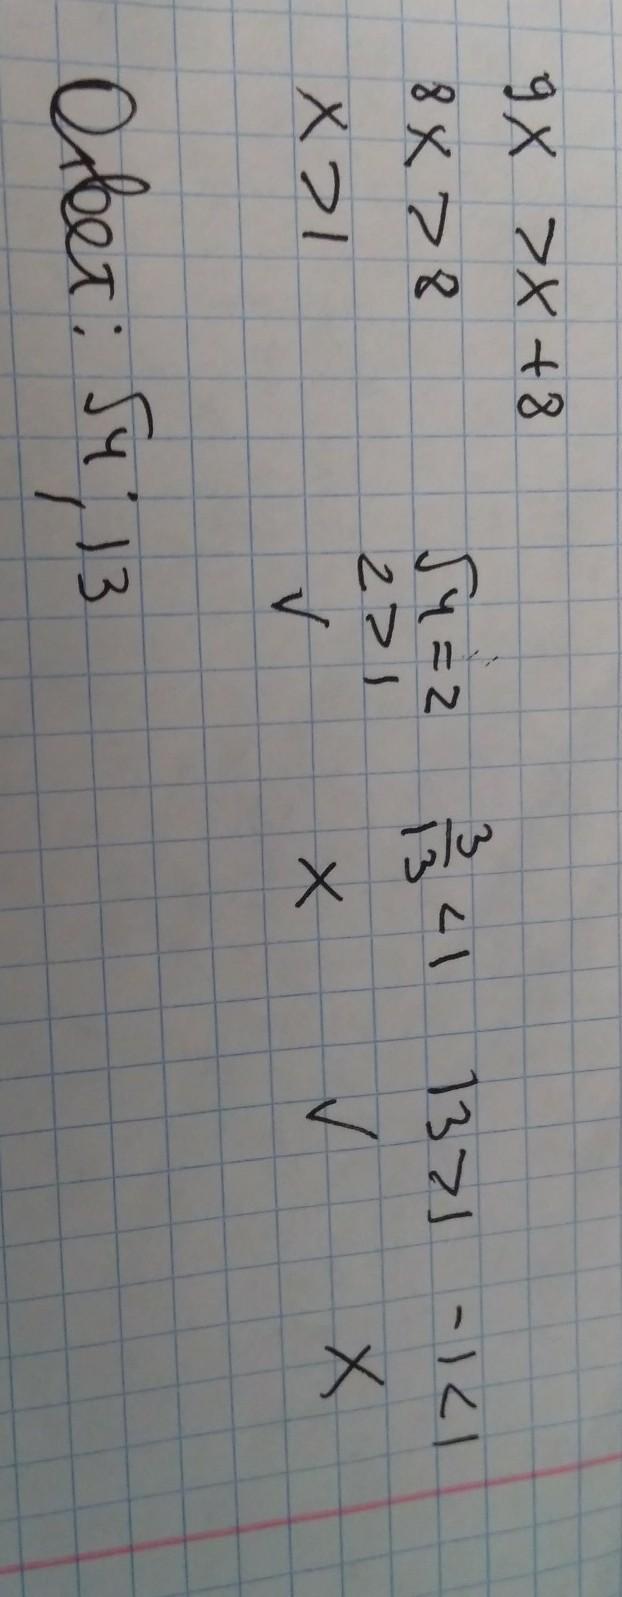 9x > x + 8
8x > 8
x > 1
√4 = 2
2 > 1
✓
3/13 < 1
x
13 > 1
✓
-1 < 1
x
Ответ: √4; 13